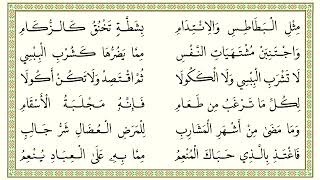 مِثْلِ الْبَطَاطِسِ وَالِائْتِدَامِ بِشَطَّةٍ تَخْنُقُ كَالزُّكَامِ
وَاجْتَنِبَنْ مُشْتَهَيَاتِ النَّفْسِ مِمَّا يَضُرُّهَا كَشُرْبِ الْبِبْسِي
لَا تَشْرَبِ الْبِبْسِي وَلَا الْكَكُولَا ثُمَّ اقْتَصِدْ وَلَا تَكُنْ أَكُولَا
لِكُلِّ مَا تَرْغَبُ مِنْ طَعَامِ فَإِنَّهُ مَجْلَبَةُ الْأَسْقَامِ
وَمَا مَضَى مِنْ أَشْهَرِ الْمَشَارِبِ لِلْمَرَضِ الْعُضَالِ شَرُّ جَالِبِ
فَاغْتَذِ بِالَّذِي حَبَاكَ الْمُنْعِمُ مِمَّا بِهِ عَلَى الْعِبَادِ يُنْعِمُ